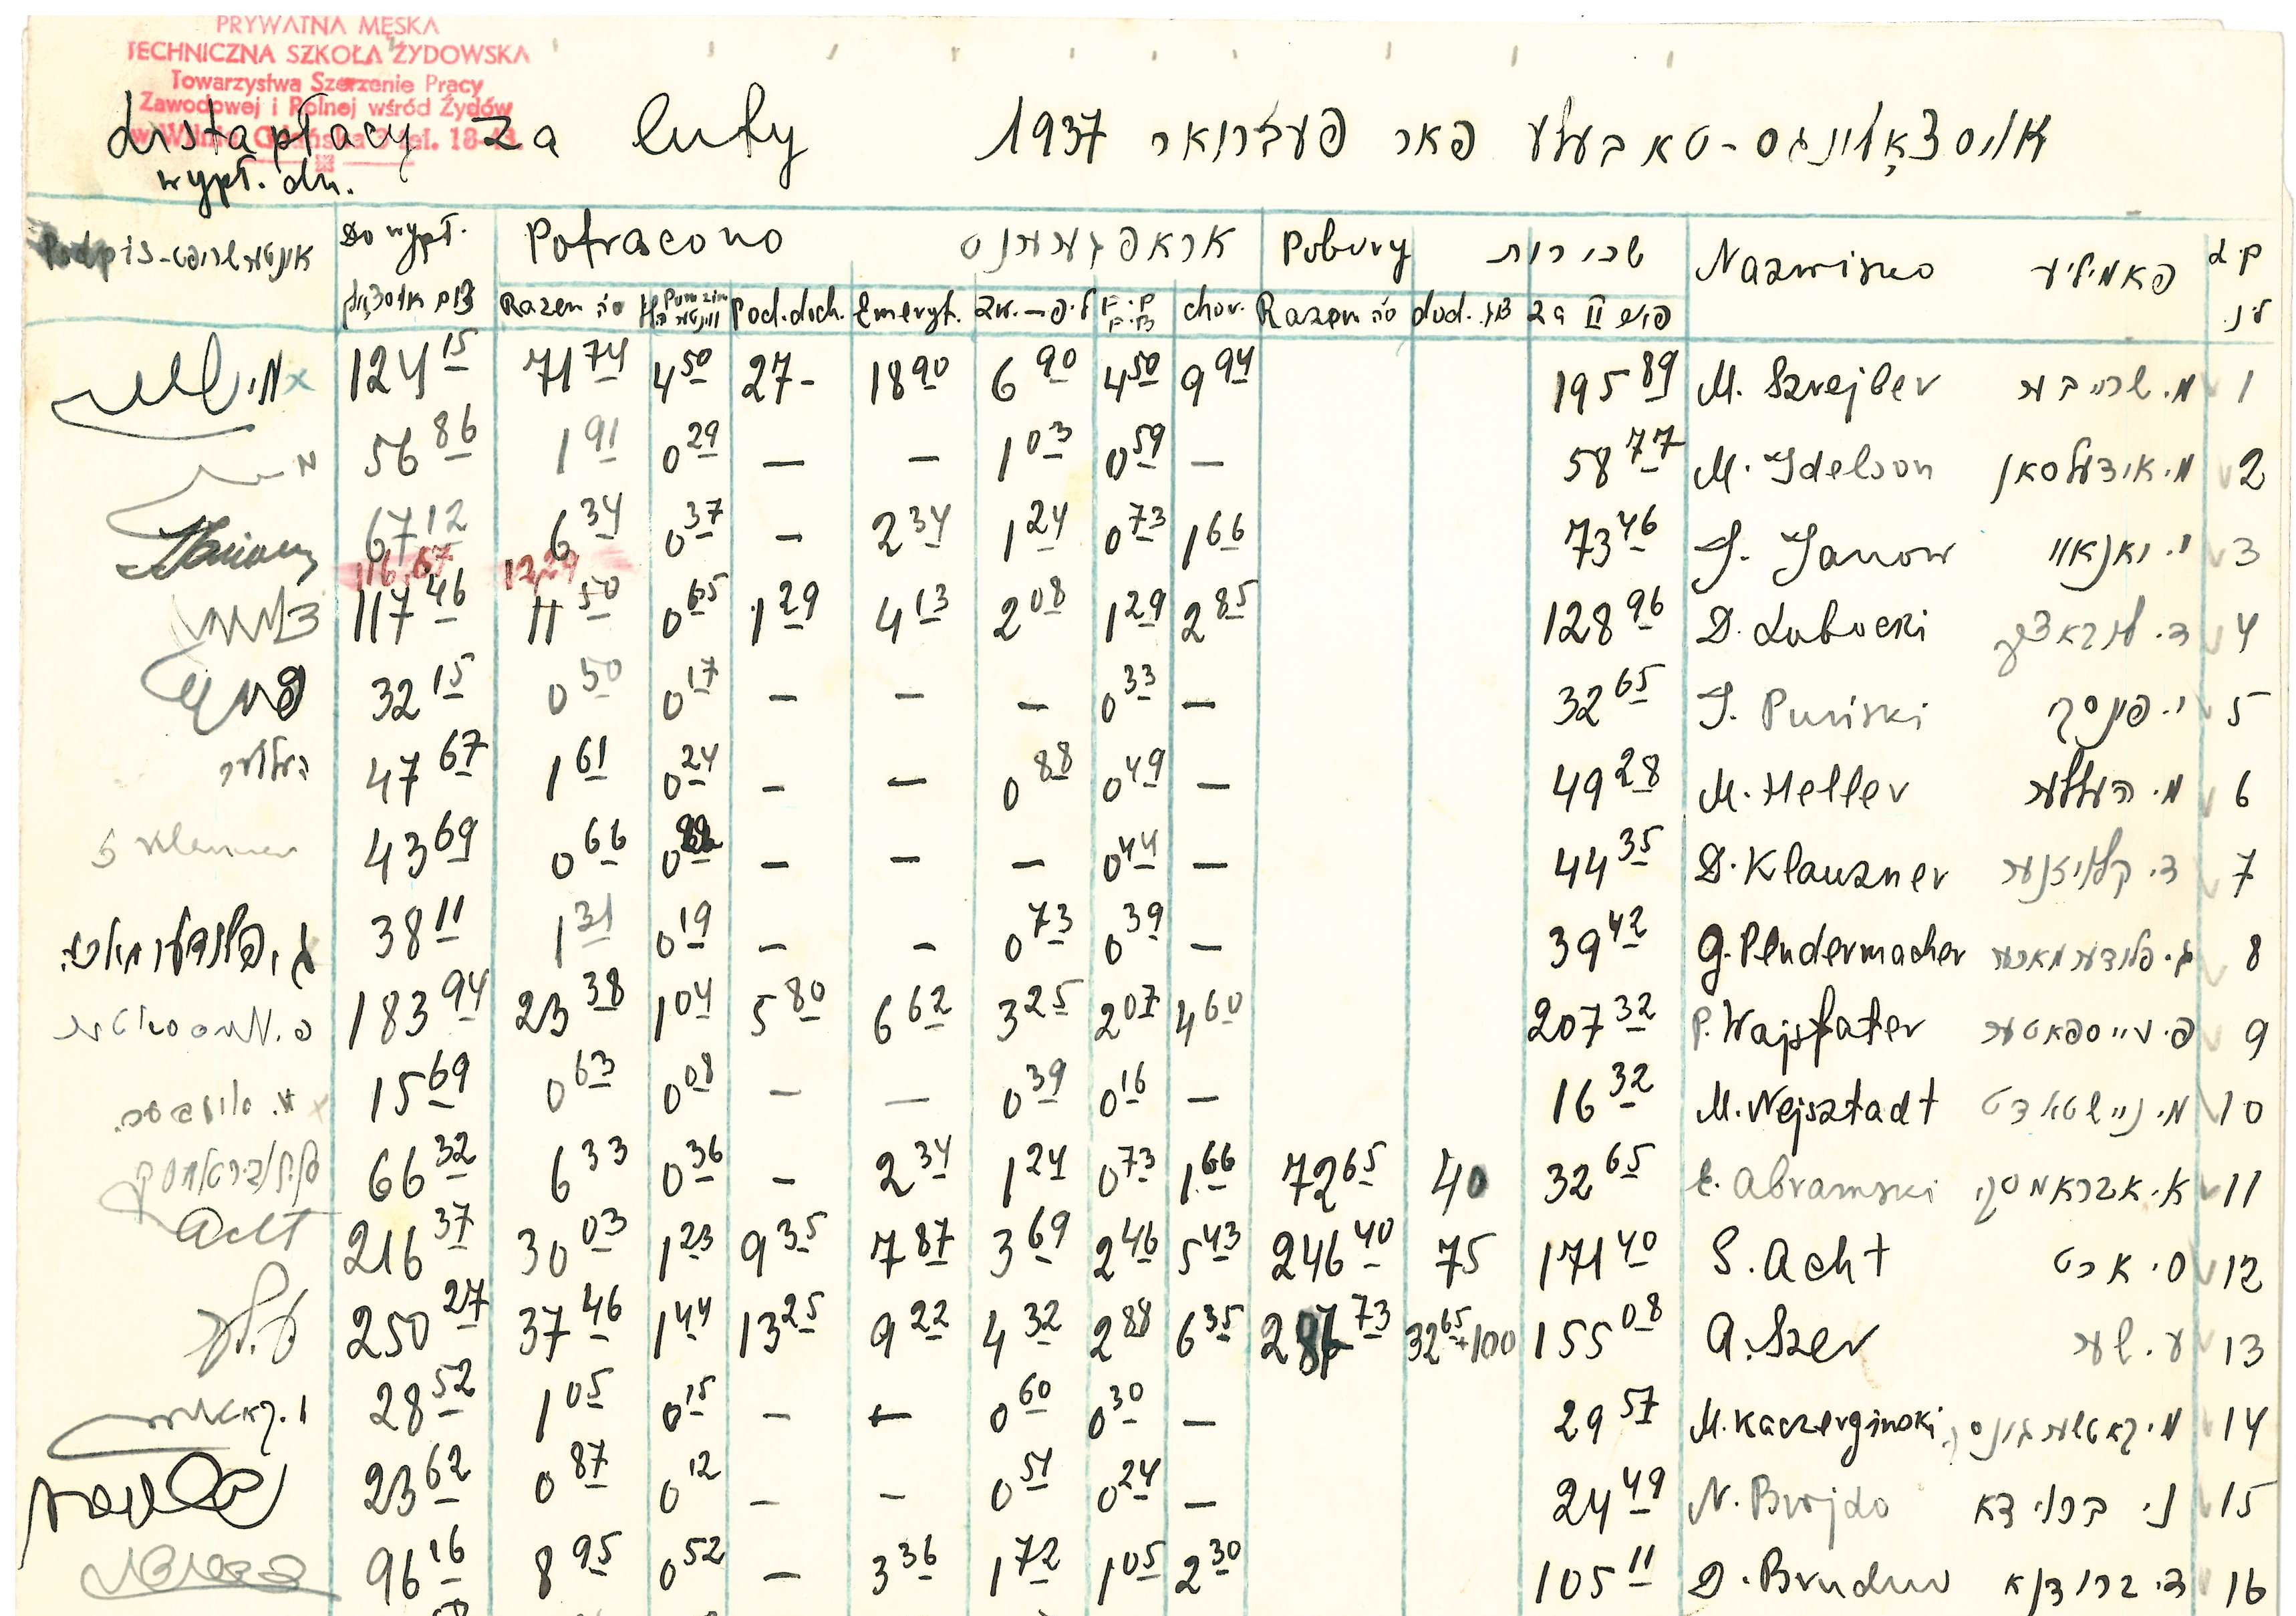 PRYWATNA MĘSKA
TECHNICZNA SZKOŁA ŻYDOWSKA
Towarzystwa Szerzenie Pracy
Zawodowej i Rolnej wśród Żydów
w Wilnie Gdańska 3 tel. 18-
Lista płacy za luty 1937 אויסצאָלונגס-טאבעלע פאר פעברואר
wypł. dn.
Podpis-אונטערשריפט Do wypł. Potrącono אראפגערעכנט Pobory שכירות Nazwisko פאמיליע
צום אויסצאָל Razem Pod.doch. Emeryt. Zw. F.P. chor. Razem dod. za II פאמ
124 15 71 74 4 50 27- 18 90 6 90 4 50 9 94 195 89 M. Szrejber מ. שרייבער 1
56 86 1 91 0 29 — — 1 03 0 59 — 58 77 M. Idelson מ. אידעלסאן 2
67 12 6 34 0 37 - 2 34 1 24 0 73 1 66 73 46 J. Janow י. יאנאוו 3
116,67 12,29
117 46 11 50 0 65 1 29 4 13 2 08 1 29 2 85 128 96 D. Lubocki ד. לובאצקי 4
32 15 0 50 0 17 - - - 0 33 — 32 65 J. Puński י. פונסקי 5
העלער 47 67 1 61 0 24 - - 0 88 0 49 - 49 28 M. Heller מ. העללער 6
43 69 0 66 0 22 - - - 0 44 - 44 35 D. Klauzner ד. קלויזנער 7
38 11 1 31 0 19 - - 0 73 0 39 - 39 42 G. Pludermacher ג. פלודערמאכער 8
183 94 23 38 1 04 5 80 6 62 3 25 2 07 4 60 207 32 P. Wajsfater פ. ווייספאטער 9
15 69 0 63 0 08 - - 0 39 0 16 - 16 32 M. Nejsztadt מ. ניישטאדט 10
66 32 6 33 0 36 - 2 34 1 24 0 73 1 66 72 65 40 32 65 E. Abramski א. אבראמסקי 11
Acht 216 37 30 03 1 23 9 35 7 87 3 69 2 46 5 43 246 40 75 171 40 S. Acht ס. אכט 12
250 27 37 46 1 44 13 25 9 22 4 32 2 88 6 35 287 73 32 65+100 155 08 A. Szer א. שער 13
28 52 1 05 0 15 - - 0 60 0 30 - 29 57 M. Kaczerginski מ. קאטשערגינסקי 14
23 62 0 87 0 12 - - 0 51 0 24 — 24 49 N. Brojdo נ. ברוידא 15
96 16 8 95 0 52 — 3 36 1 72 1 05 2 30 105 11 D. Brudno ד. ברודנא 16